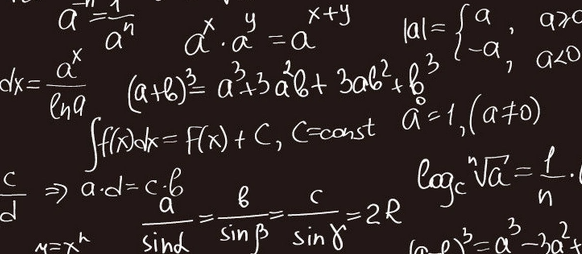 a⁻ⁿ = 1/aⁿ
aˣ · aʸ = aˣ⁺ʸ
|a| = { a, a≥0
-a, a<0
dx = aˣ/ln a
(a+b)³ = a³+3a²b+3ab²+b³
∫f(x)dx = F(x) + C, C=const
a⁰=1, (a≠0)
c/d ⇒ a·d=c·b
log_c ⁿ√a = 1/n ·
a/sin α = b/sin β = c/sin γ = 2R
y=xⁿ
(a-b)³=a³-3a²+